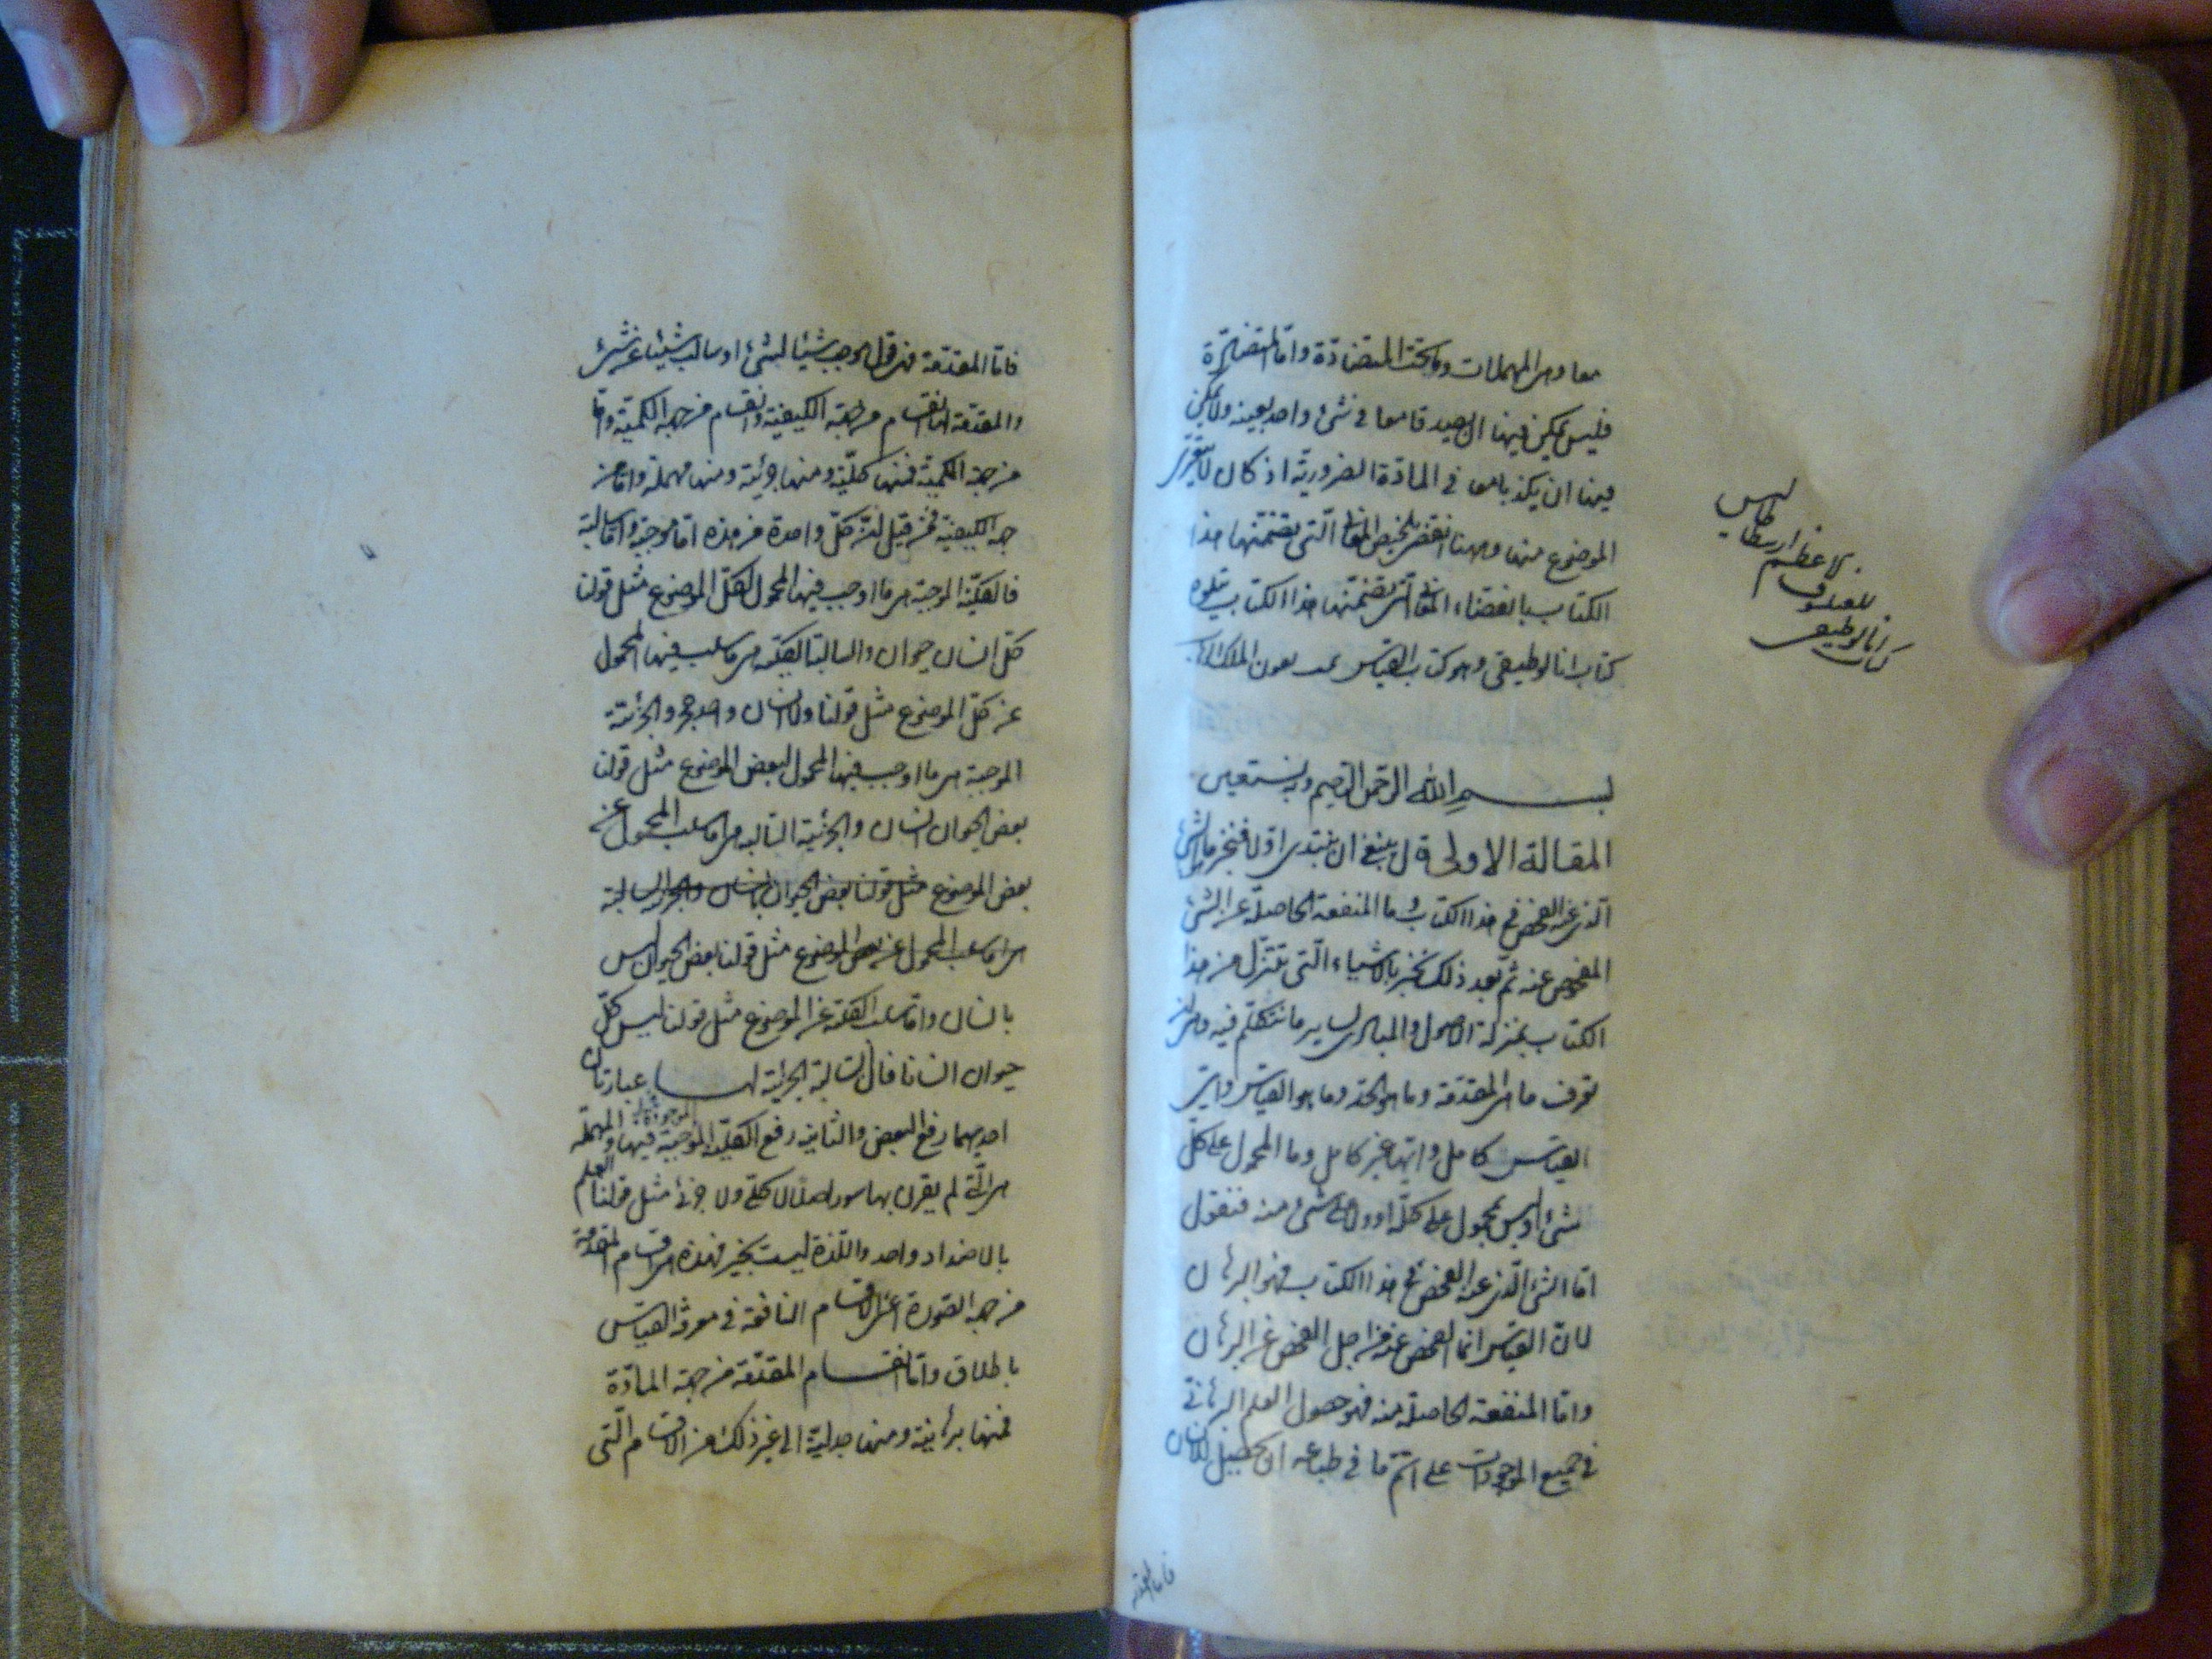 معا وهي المهملات وما تحت المتضادة واما المتضادة
فليس يمكن فيها ان يصدقا معا في شئ واحد بعينه ويمكن
فيهما ان يكذبا معا في المادة الضرورية اذ كان
الموضوع منها وههنا انقضى تلخيص المعاني التي تضمنها هذا
الكتاب بانقضاء المعاني التي تضمنها هذا الكتاب يتلوه
كتاب انالوطيقي وهو كتاب القياس بعون الملك
كتاب انالوطيقى
للفيلسوف
الاعظم ارسطاطاليس
بسم الله الرحمن الرحيم وبه نستعين
المقالة الاولى قال ينبغي ان نبتدى اولا فنخبر ما الشئ
الذي عنه الفحص في هذا الكتاب وما المنفعة الحاصلة عن الشئ
المفحوص عنه ثم بعد ذلك نخبر بالاشياء التي تتنزل من هذا
الكتاب بمنزلة الاصول والمبادى لساير ما نتكلم فيه وهي ان
نعرف ما هي المقدمة وما هو الحد وما هو القياس واي
القياس كامل وايها غير كامل وما المحمول على كل
شئ او ليس بمحمول على كله او ولا على شئ منه فنقول
اما الشئ الذي عنه الفحص في هذا الكتاب فهو البرهان
لان القياس انما الفحص عنه من اجل الفحص عن البرهان
واما المنفعة الحاصلة منه فهو حصول العلم البرهاني
في جميع الموجودات على اتم ما في طباعه ان يحصل للانسان
فاما المقدمة
فاما المقدمة فهي قول موجب شيئا لشئ او سالب شيئا عن شئ
والمقدمة لها انقسام من جهة الكيفية وانقسام من جهة الكمية واما
من جهة الكمية فمنها كلية ومنها جزئية ومنها مهملة واما من
جهة الكيفية فمن قبل ان كل واحدة من هذه اما موجبة واما سالبة
فالكلية الموجبة هي ما اوجب فيها المحمول لكل الموضوع مثل قولنا
كل انسان حيوان والسالبة الكلية هي ما سلب فيها المحمول
عن كل الموضوع مثل قولنا ولا انسان واحد حجر والجزئية
الموجبة هي ما اوجب فيها المحمول لبعض الموضوع مثل قولنا
بعض الحيوان انسان والجزئية السالبة هي اما سلب المحمول عن
بعض الموضوع مثل قولنا بعض الحيوان انسان والجزئية السالبة
هي اما سلب المحمول عن بعض الموضوع مثل قولنا بعض الحيوان ليس
بانسان واما سلب الكلية عن الموضوع مثل قولنا ليس كل
حيوان انسانا فان السالبة الجزئية لها عبارتان
احديهما رفع البعض والثانية رفع الكلية الموجبة فيها والمهملة
هي التي لم يقرن بها سور اصلا لا كلي ولا جزئي مثل قولنا العلم
بالاضداد واحد واللذة ليست بخير فهذه هي اقسام المقدمة
من جهة الصورة اعني الاقسام النافعة في معرفة القياس
باطلاق واما انقسام المقدمة من جهة المادة
فمنها برهانية ومنها جدلية الى غير ذلك من الاقسام التي